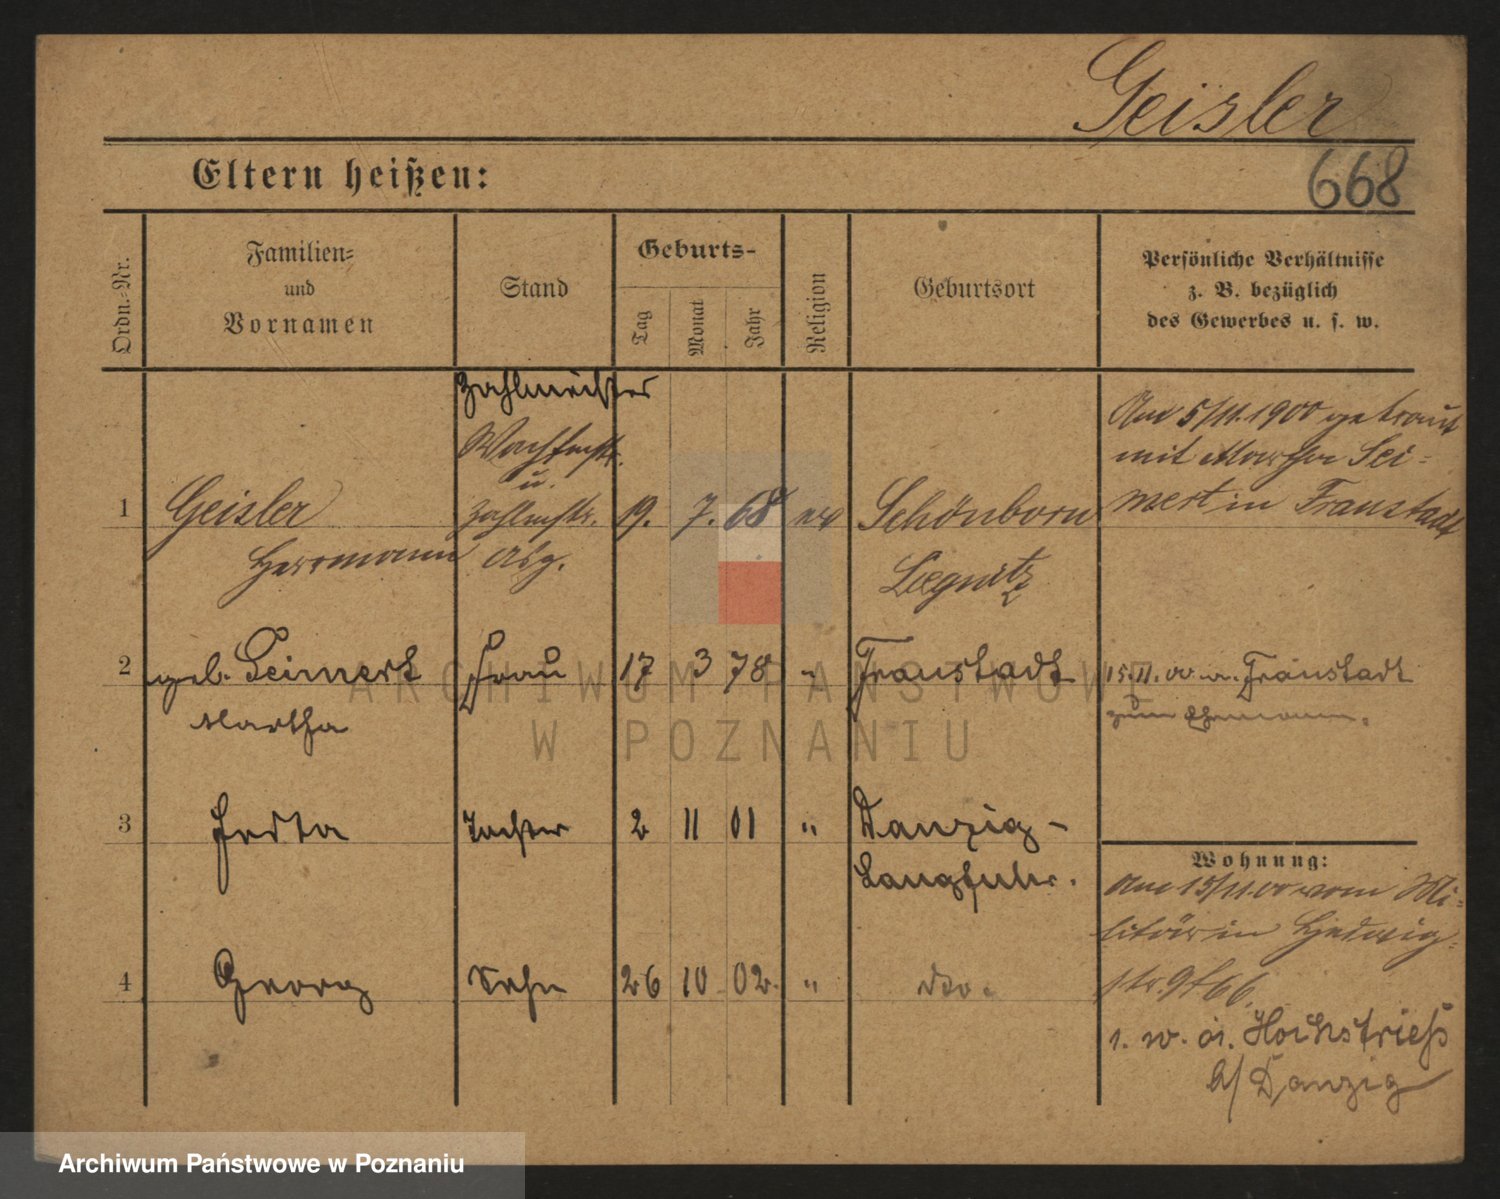 Geisler
668
Eltern heißen:
Ordn.-Nr.
Familien-
und
Vornamen
Stand
Geburts-
Tag
Monat
Jahr
Religion
Geburtsort
Persönliche Verhältnisse
z. B. bezüglich
des Gewerbes u. s. w.
Zahlmeister
Wachtmstr.
u.
1 Geisler Zahlmstr. 19. 7. 68 ev Schönborn
Herrmann Asp. Liegnitz
Am 5/11.1900 getraut
mit Martha Sei-
mert in Fraustadt
2 geb. Seimert Frau 17 3 78 " Fraustadt
Martha
15.11.00 v. Fraustadt
zum Ehemann.
3 Herta Tochter 2 11 01 " Danzig-
Langfuhr.
4 Georg Sohn 26 10 02. " do.
Wohnung:
Am 15/11.00 vom Mi-
litär in Hedwig-
str. 9
1. w. a. Hochstrieß
b/ Danzig
ARCHIWUM PAŃSTWOWE
W POZNANIU
Archiwum Państwowe w Poznaniu